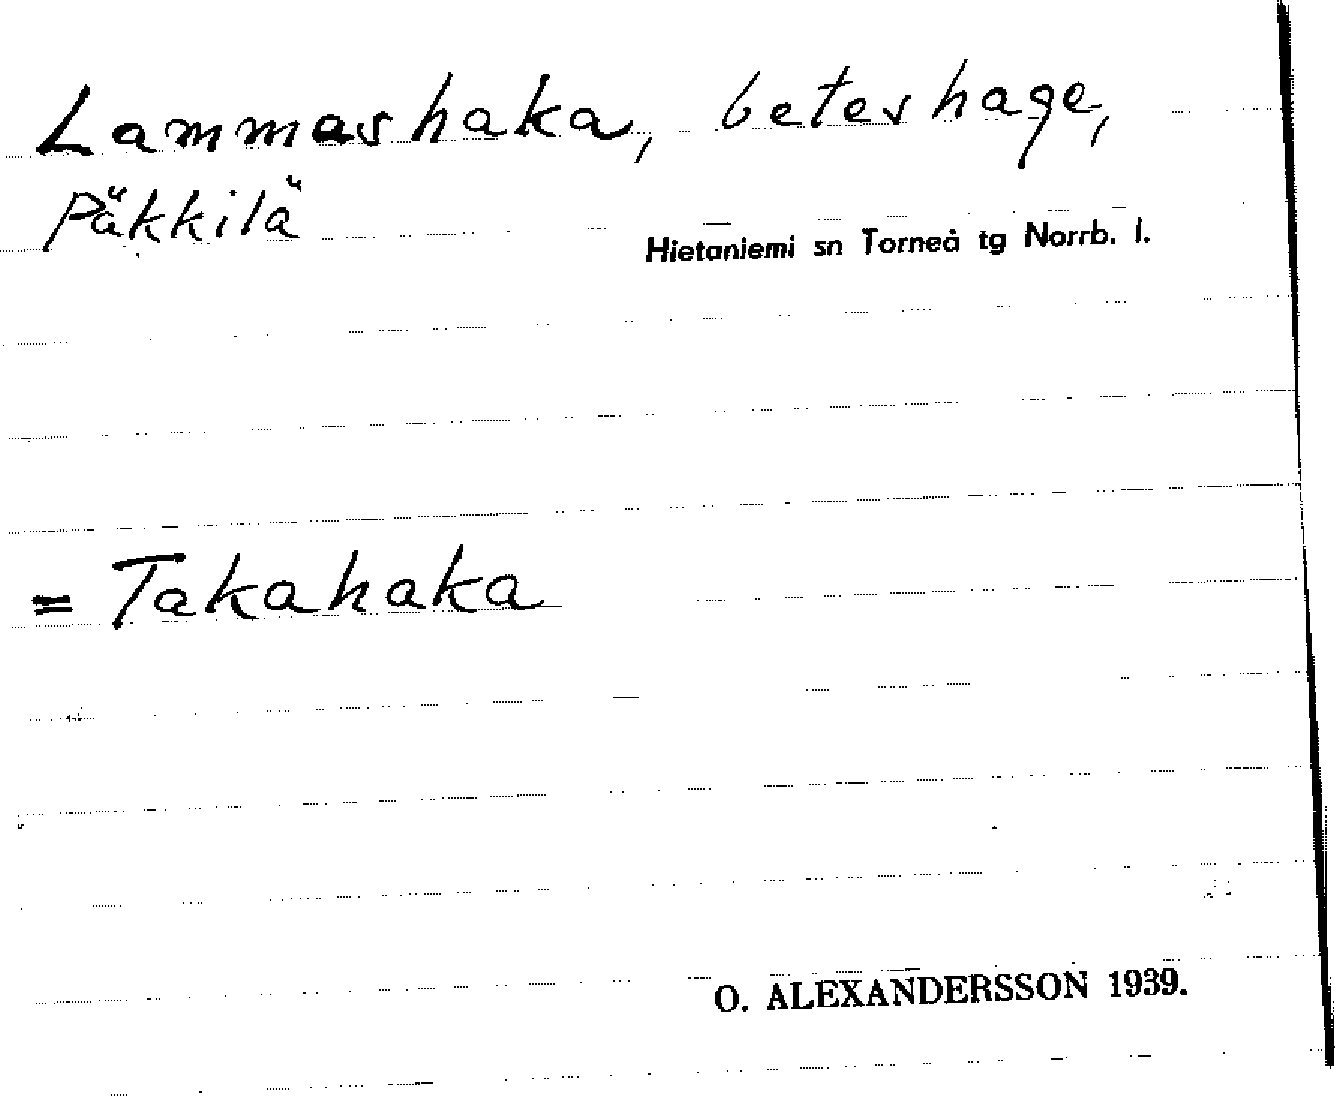 Lammashaka, beteshage,
Päkkilä
Hietaniemi sn Torneå tg Norrb. l.
= Takahaka
O. ALEXANDERSSON 1939.